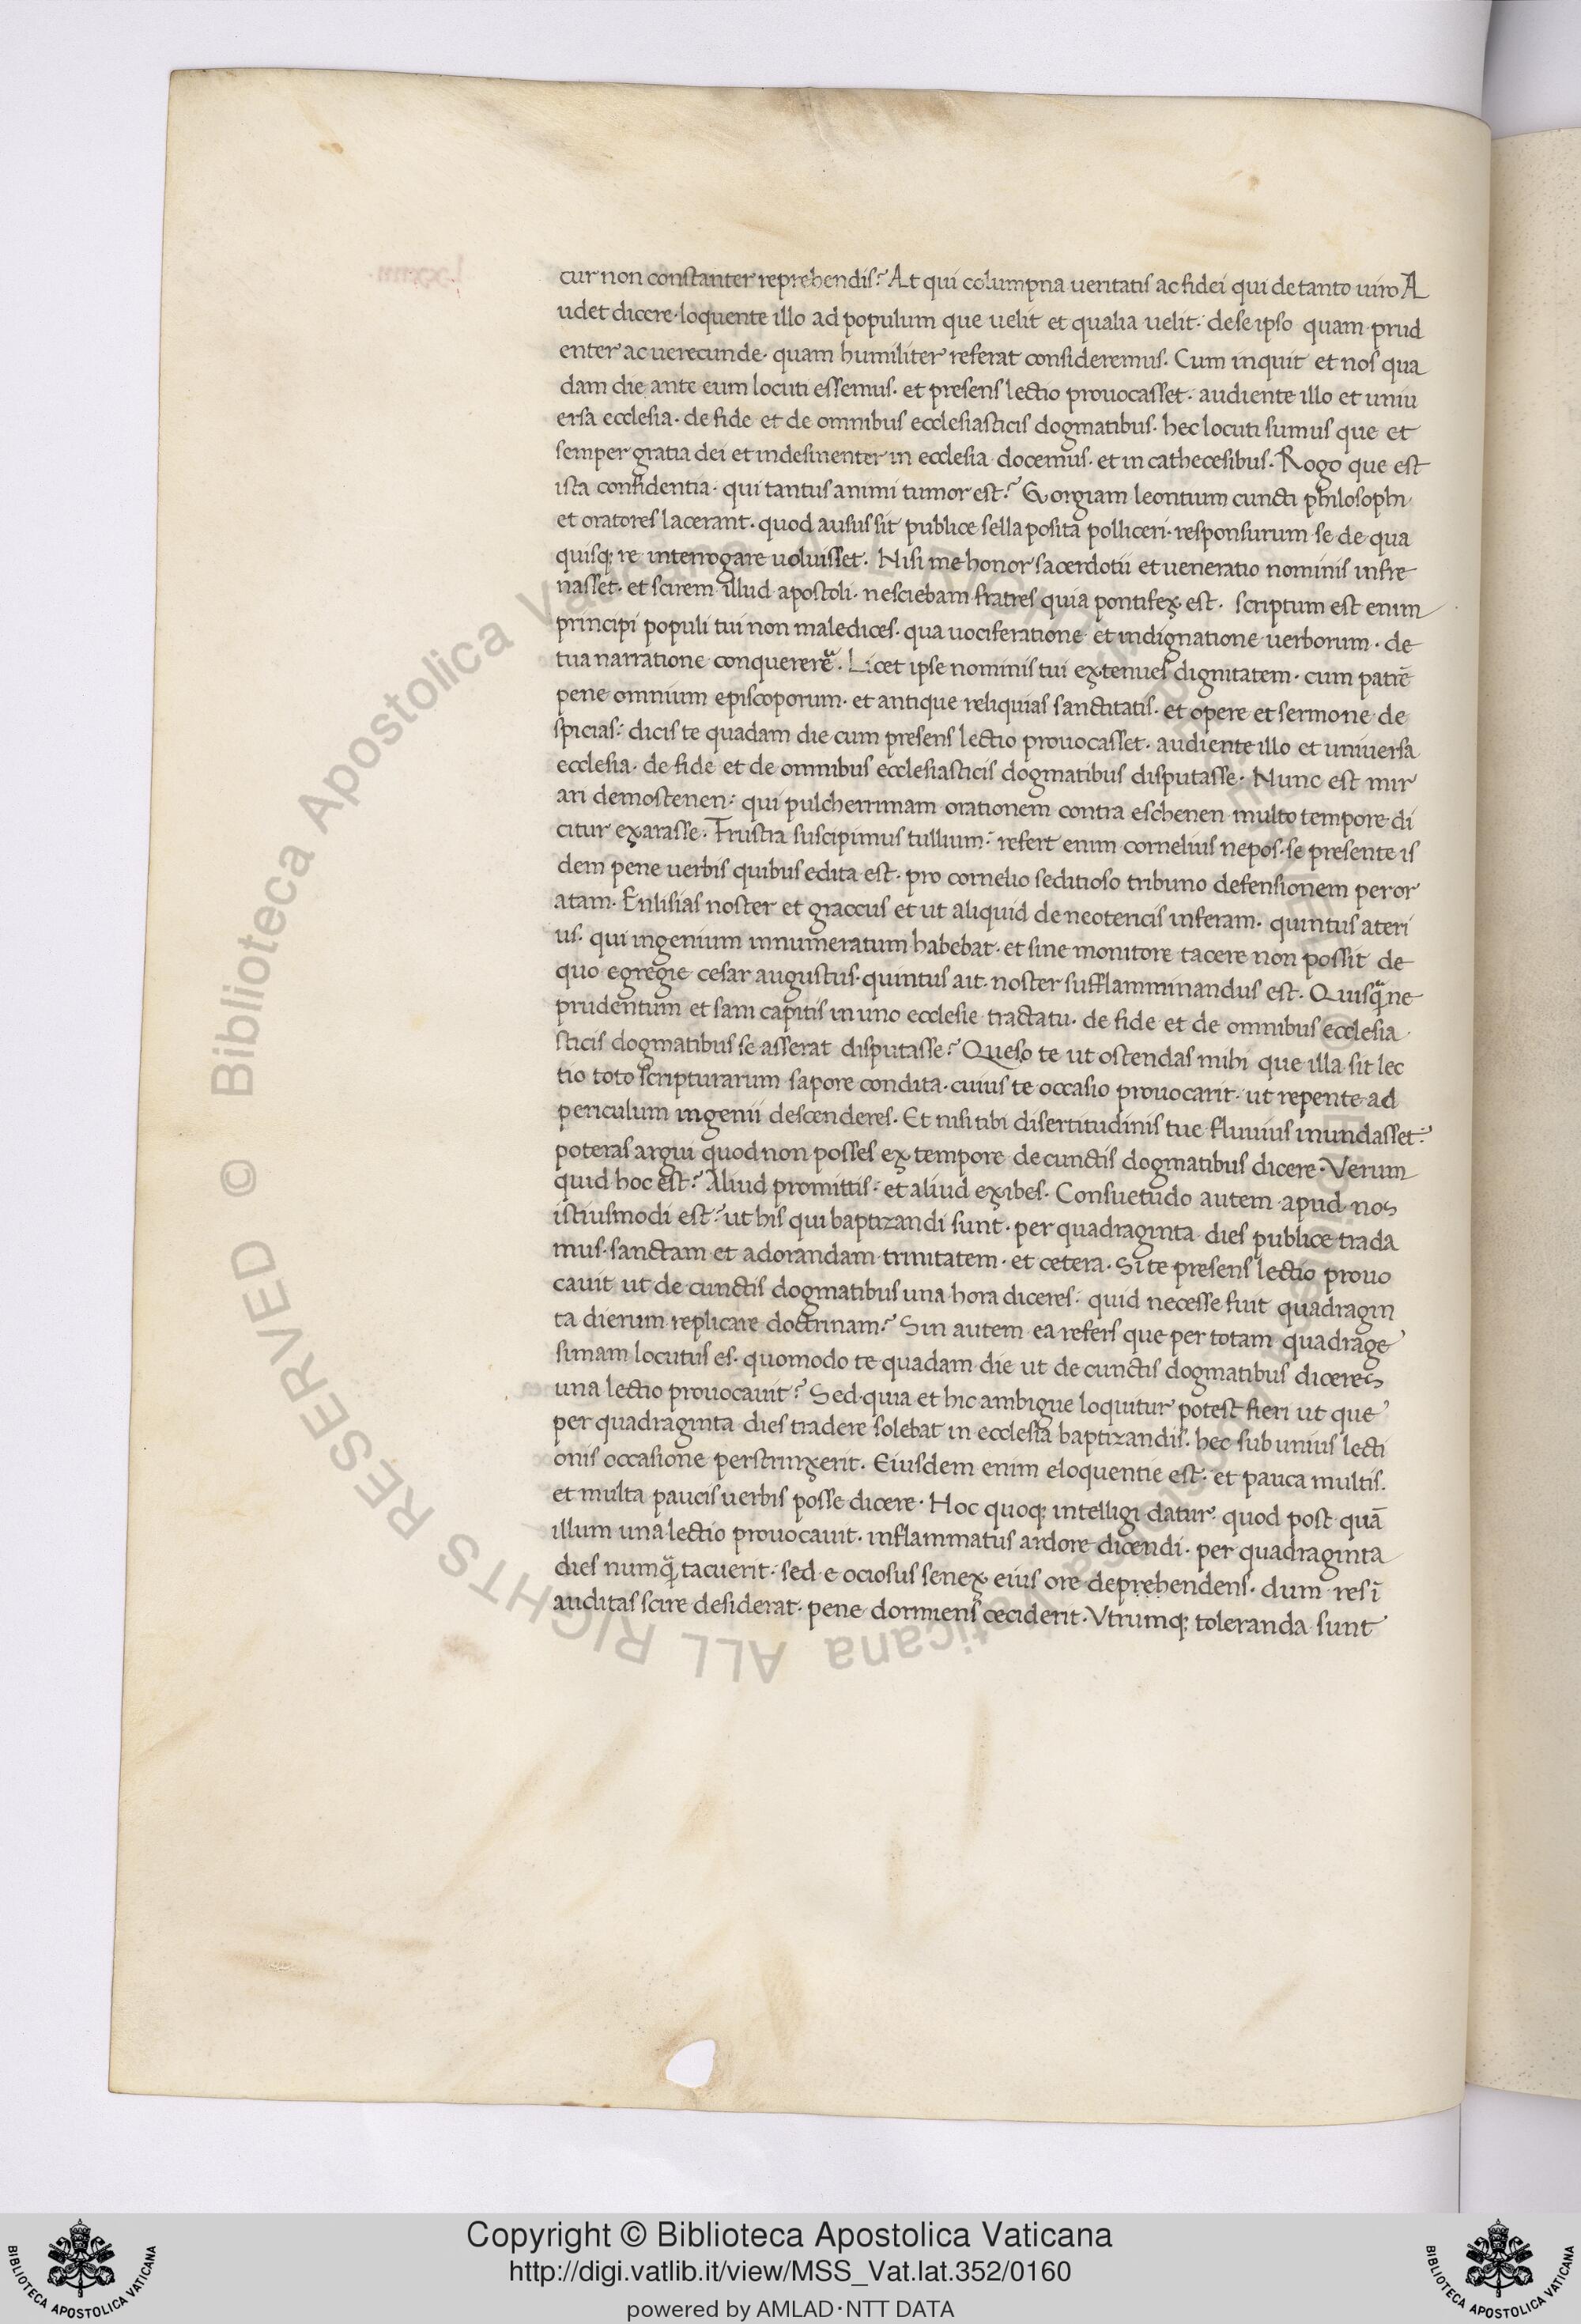 cur non constanter reprehendis? At qui columpna ueritatis ac fidei qui de tanto uiro A
udet dicere · loquente illo ad populum que uelit et qualia uelit · de se ipso quam prud
enter ac uerecunde · quam humiliter referat consideremus. Cum inquit et nos qua
dam die ante eum locuti essemus · et presens lectio prouocasset · audiente illo et uniu
ersa ecclesia · de fide et de omnibus ecclesiasticis dogmatibus · hec locuti sumus que et
semper gratia dei et indesinenter in ecclesia docemus · et in cathecesibus. Rogo que est
ista confidentia · qui tantus animi tumor est? Gorgiam leontium cuncti philosophi
et oratores lacerant · quod ausus sit publice sella posita polliceri · responsurum se de qua
quisq; re interrogare uoluisset. Nisi me honor sacerdotii et ueneratio nominis infre
nasset · et scirem illud apostoli · nesciebam fratres quia pontifex est. scriptum est enim
principi populi tui non maledices · qua uociferatione et indignatione uerborum · de
tua narratione conquererer. Licet ipse nominis tui extenues dignitatem · cum patrē
pene omnium episcoporum · et antique reliquias sanctitatis · et opere et sermone de
spicias: dicis te quadam die cum presens lectio prouocasset · audiente illo et uniuersa
ecclesia · de fide et de omnibus ecclesiasticis dogmatibus disputasse · Nunc est mir
ari demostenen: qui pulcherrimam orationem contra eschenen multo tempore di
citur exarasse. Frustra suscipimus tullium: refert enim cornelius nepos · se presente is
dem pene uerbis quibus edita est · pro cornelio seditioso tribuno defensionem peror
atam. Enlisias noster et graccus et ut aliquid de neotericis inferam · quintus ateri
us · qui ingenium innumeratum habebat · et sine monitore tacere non possit de
quo egregie cesar augustus · quintus ait · noster sufflamminandus est. Quisq̄ ne
prudentum et sani capitis in uno ecclesie tractatu · de fide et de omnibus ecclesia
sticis dogmatibus se asserat disputasse? Queso te ut ostendas mihi que illa sit lec
tio toto scripturarum sapore condita · cuius te occasio prouocarit · ut repente ad
periculum ingenii descenderes · Et nisi tibi disertitudinis tue fluuius inundasset:
poteras argui quod non posses ex tempore de cunctis dogmatibus dicere · Verum
quid hoc est? Aliud promittis: et aliud exibes. Consuetudo autem apud nos
istiusmodi est: ut his qui baptizandi sunt · per quadraginta dies publice trada
mus · sanctam et adorandam trinitatem · et cetera · Si te presens lectio prouo
cauit ut de cunctis dogmatibus una hora diceres: quid necesse fuit quadragin
ta dierum replicare doctrinam? Sin autem ea refers que per totam quadrage
simam locutus es · quomodo te quadam die ut de cunctis dogmatibus diceres
una lectio prouocauit? Sed quia et hic ambigue loquitur potest fieri ut que
per quadraginta dies tradere solebat in ecclesia baptizandis · hec sub unius lecti
onis occasione perstrinxerit. Eiusdem enim eloquentie est: et pauca multis.
et multa paucis uerbis posse dicere · Hoc quoq; intelligi datur: quod post quā
illum una lectio prouocauit · inflammatus ardore dicendi · per quadraginta
dies numq̄ tacuerit · sed e ociosus senex eius ore deprehendens · dum res ī
auditas scire desiderat · pene dormiens ceciderit · Vtrumq; toleranda sunt
© Biblioteca Apostolica Vaticana ALL RIGHTS RESERVED
BIBLIOTECA APOSTOLICA VATICANA
Copyright © Biblioteca Apostolica Vaticana
http://digi.vatlib.it/view/MSS_Vat.lat.352/0160
powered by AMLAD·NTT DATA
BIBLIOTECA APOSTOLICA VATICANA